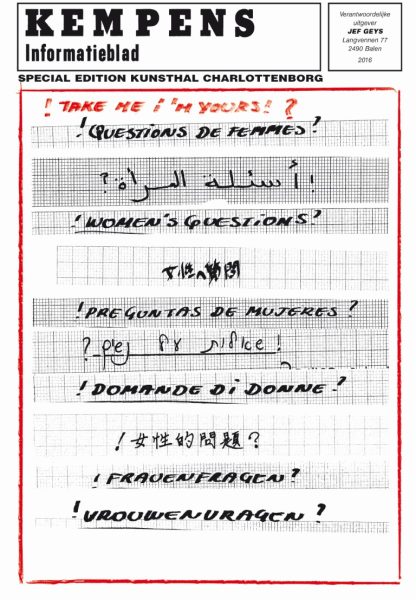 KEMPENS
Informatieblad
Verantwoordelijke
uitgever
JEF GEYS
Langvennen 77
2490 Balen
2016
SPECIAL EDITION KUNSTHAL CHARLOTTENBORG
! TAKE ME I'M YOURS! ?
! QUESTIONS DE FEMMES ?
! أسئلة المرأة ?
! WOMEN'S QUESTIONS ?
女性 質問
! PREGUNTAS DE MUJERES ?
! שאלות נשים ?
! DOMANDE DI DONNE ?
! 女性的問題 ?
! FRAUENFRAGEN ?
! VROUWENVRAGEN ?